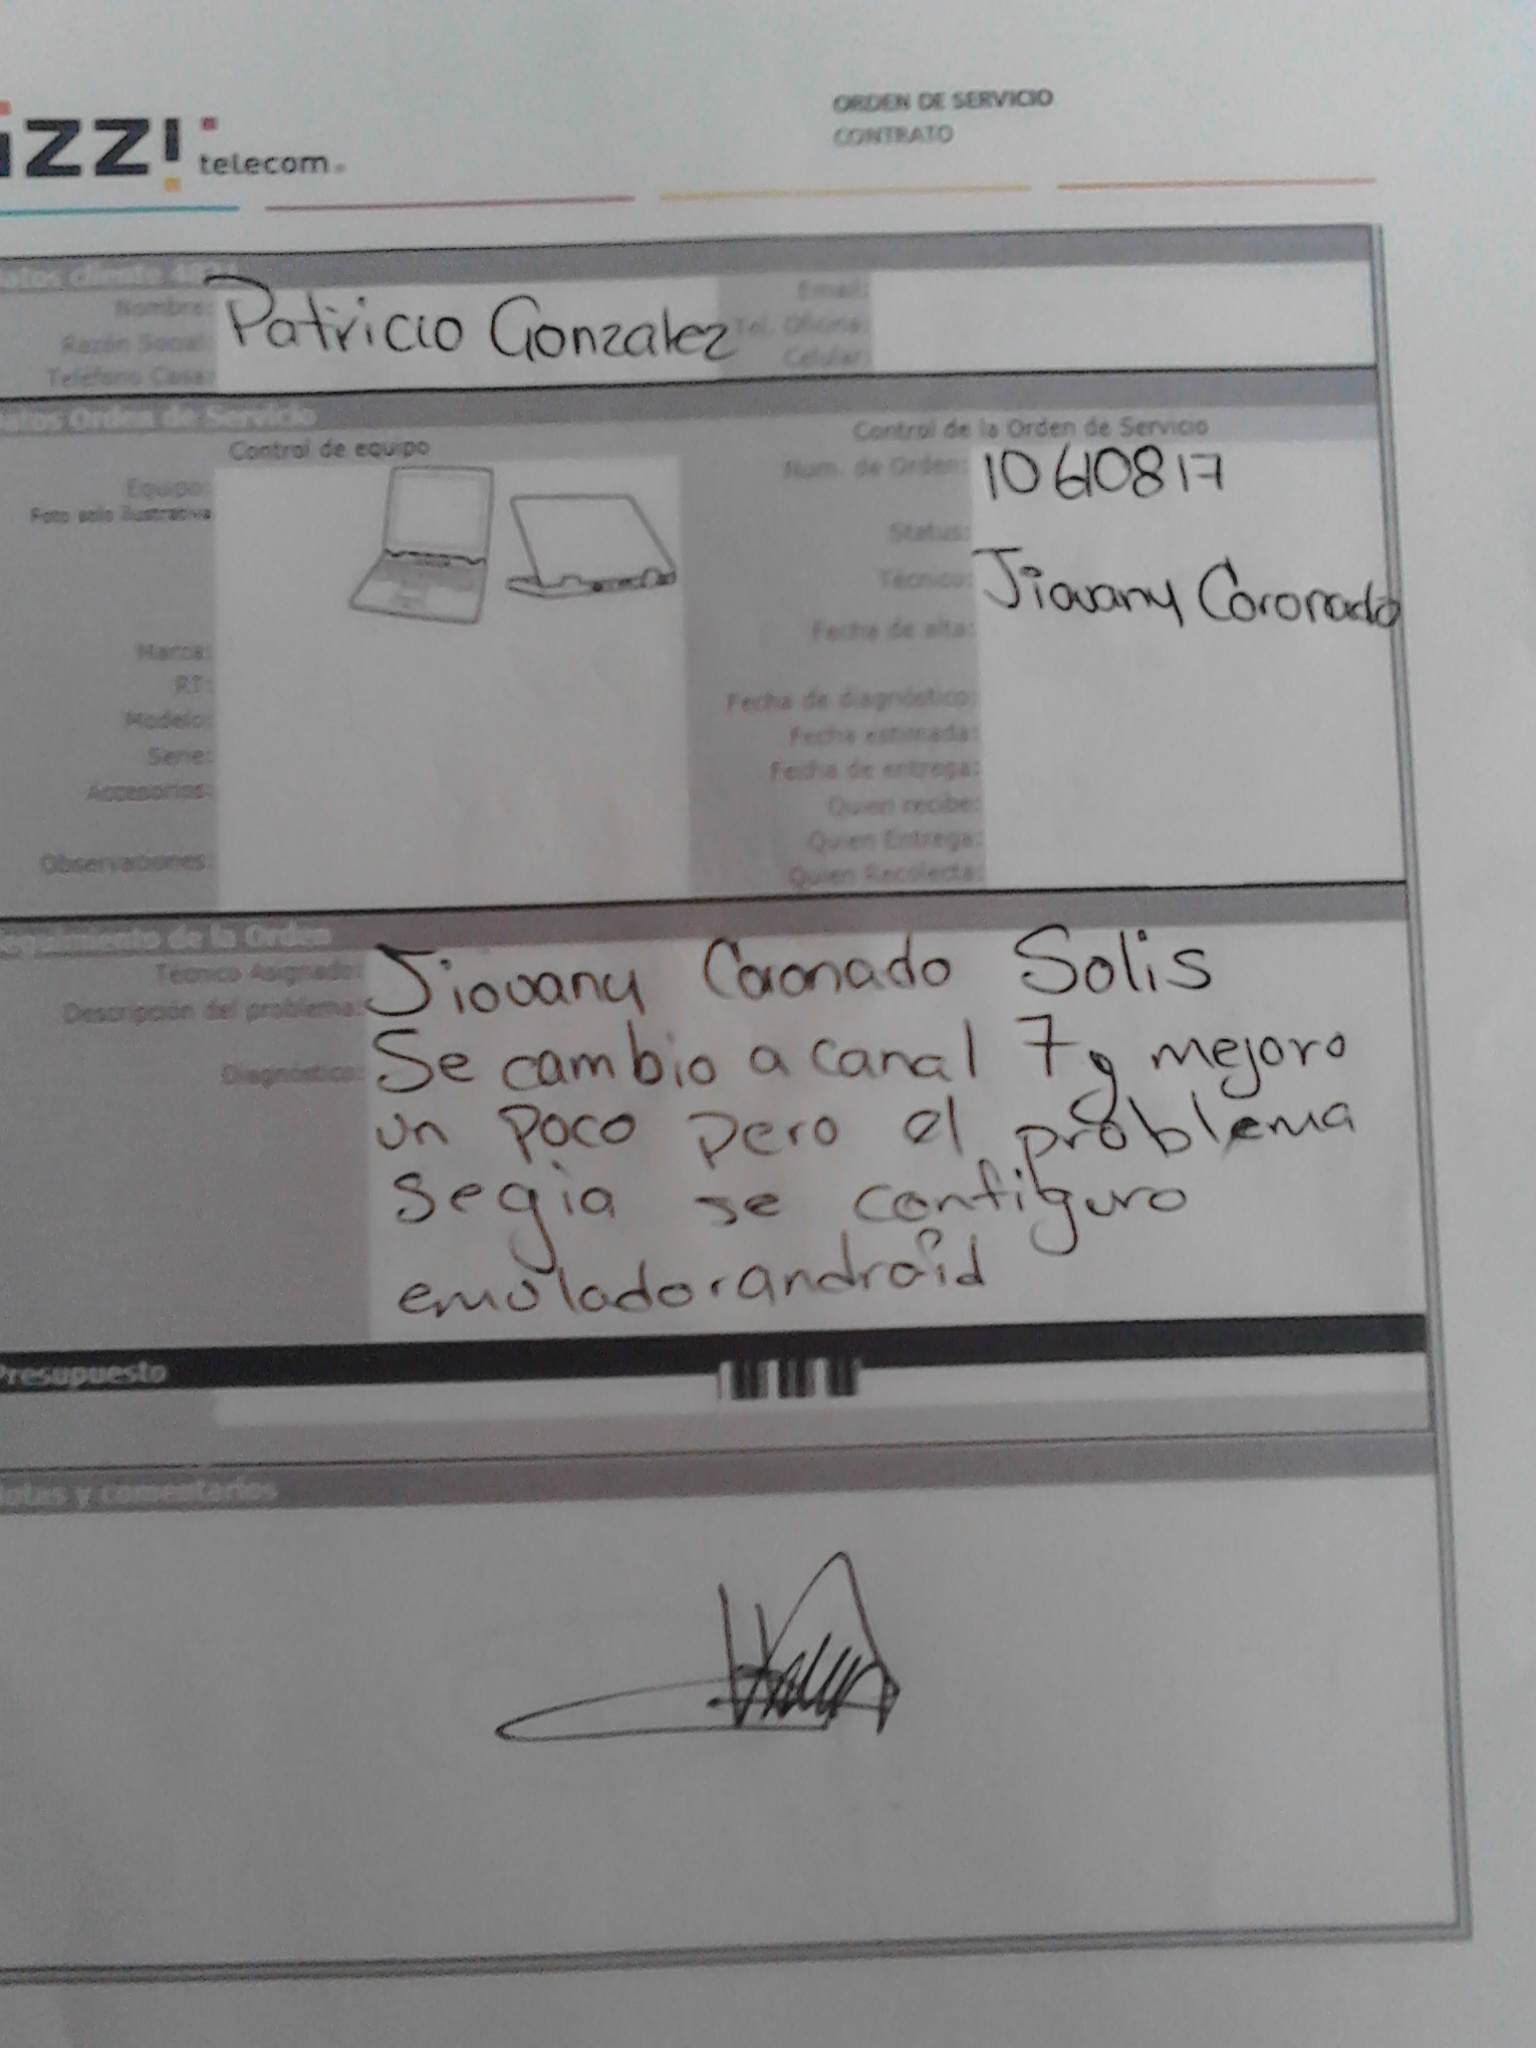 izzi telecom
ORDEN DE SERVICIO
CONTRATO
Datos cliente
Nombre: Patricio Gonzalez
Razón Social:
Teléfono Casa:
Email:
Tel. Oficina:
Celular:
Datos Orden de Servicio
Control de equipo
Equipo:
Foto solo ilustrativa
Marca:
RT:
Modelo:
Serie:
Accesorios:
Observaciones:
Control de la Orden de Servicio
Num. de Orden: 10610817
Status:
Técnico: Jiovany Coronado
Fecha de alta:
Fecha de diagnóstico:
Fecha estimada:
Fecha de entrega:
Quien recibe:
Quien Entrega:
Quien Recolecta:
Seguimiento de la Orden
Técnico Asignado: Jiovany Coronado Solis
Descripción del problema:
Diagnóstico: Se cambio a canal 7 y mejoro
un poco pero el problema
segia se configuro
emulador android
Presupuesto
Notas y comentarios